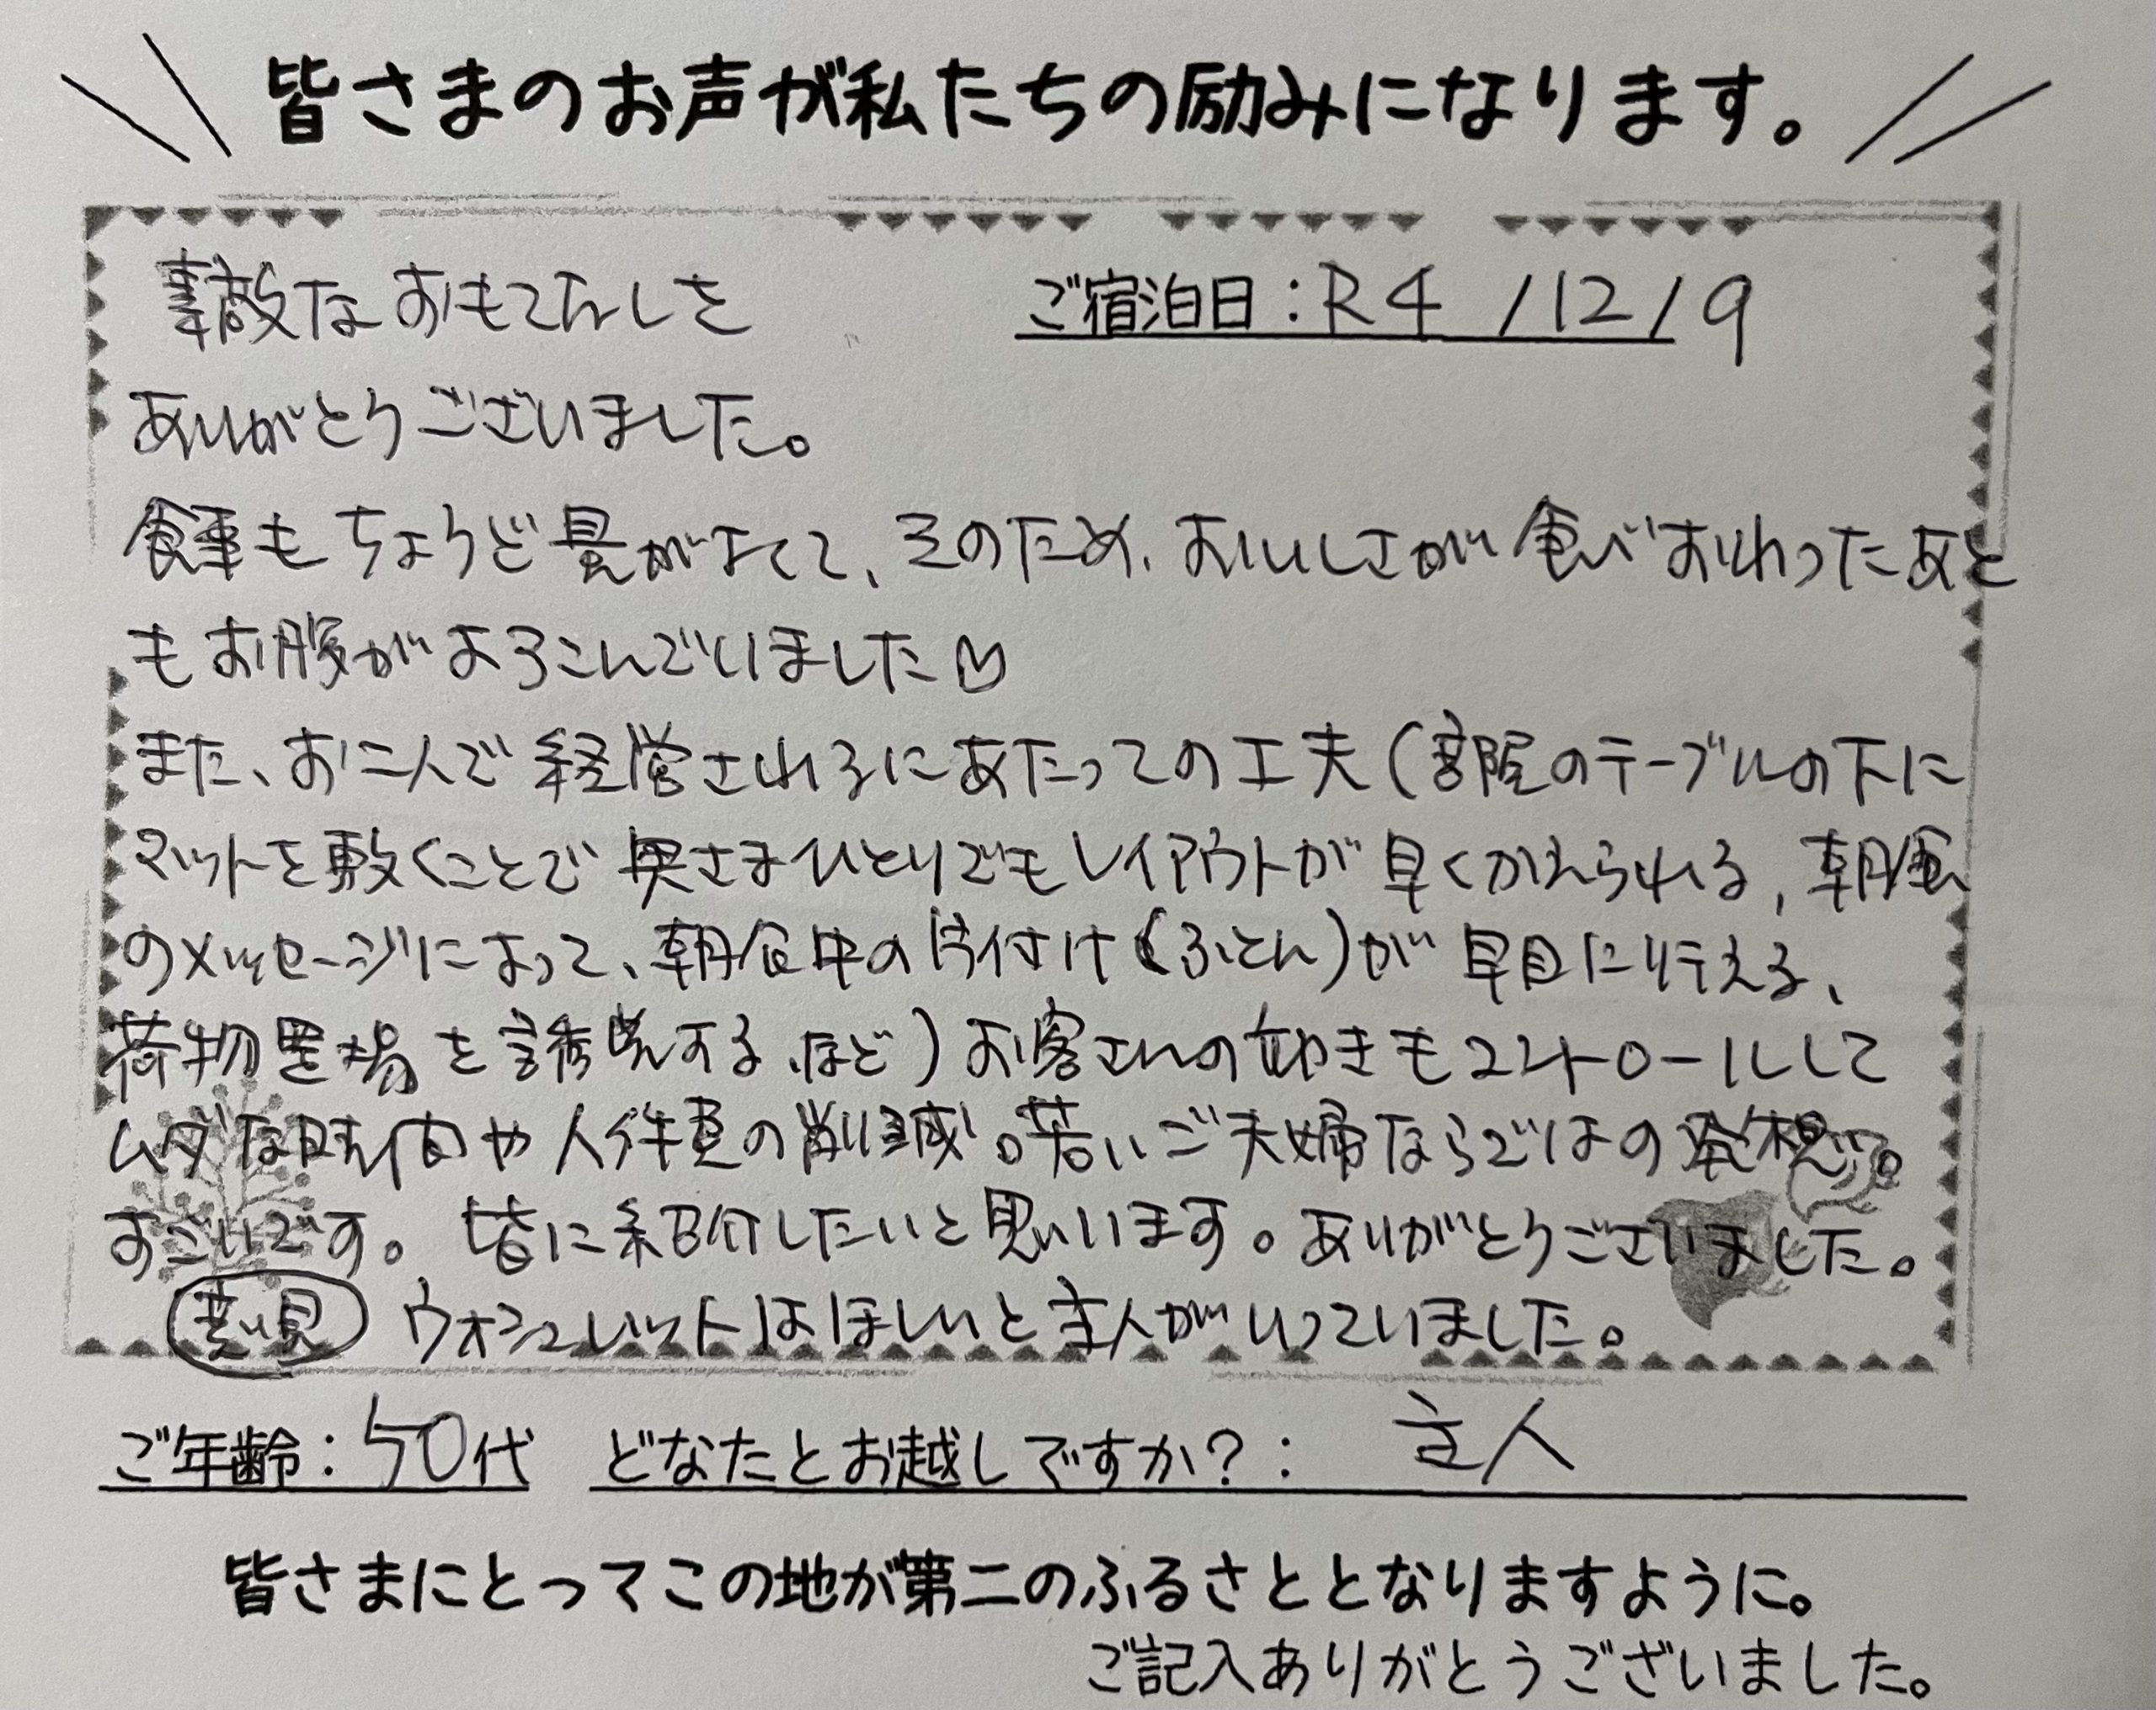 皆さまのお声が私たちの励みになります。
素敵なおもてなしを
ご宿泊日：R4/12/9
ありがとうございました。
食事もちょうど量がよくて、そのため、おいしさが食べおわったあと
もお腹がよろこんでいました♡
また、お二人で経営されるにあたっての工夫(部屋のテーブルの下に
マットを敷くことで奥さまひとりでもレイアウトが早くかえられる、朝食
のメッセージによって、朝食中の片付け(ふとん)が早目に行える、
荷物置場を誘導するなど)お客さんの動きもコントロールして
ムダな時間や人件費の削減。若いご夫婦ならではの発想。
すごいです。皆に紹介したいと思います。ありがとうございました。
意見 ウォシュレットはほしいと主人がいっていました。
ご年齢：50代 どなたとお越しですか？：主人
皆さまにとってこの地が第二のふるさととなりますように。
ご記入ありがとうございました。